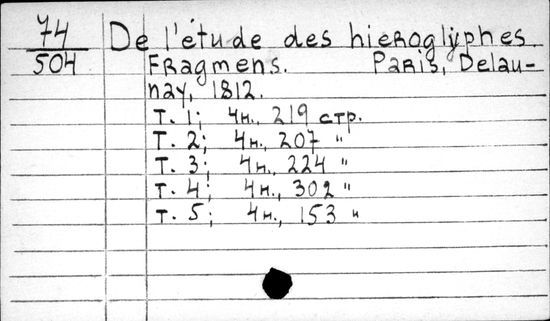 74 De l'étude des hieroglyphes.
504 Fragmens. Paris, Delau-
nay, 1812.
Т. 1; 4н., 219 стр.
Т. 2; 4н., 207 "
Т. 3; 4н., 224 "
Т. 4; 4н., 302 "
Т. 5; 4н., 153 "